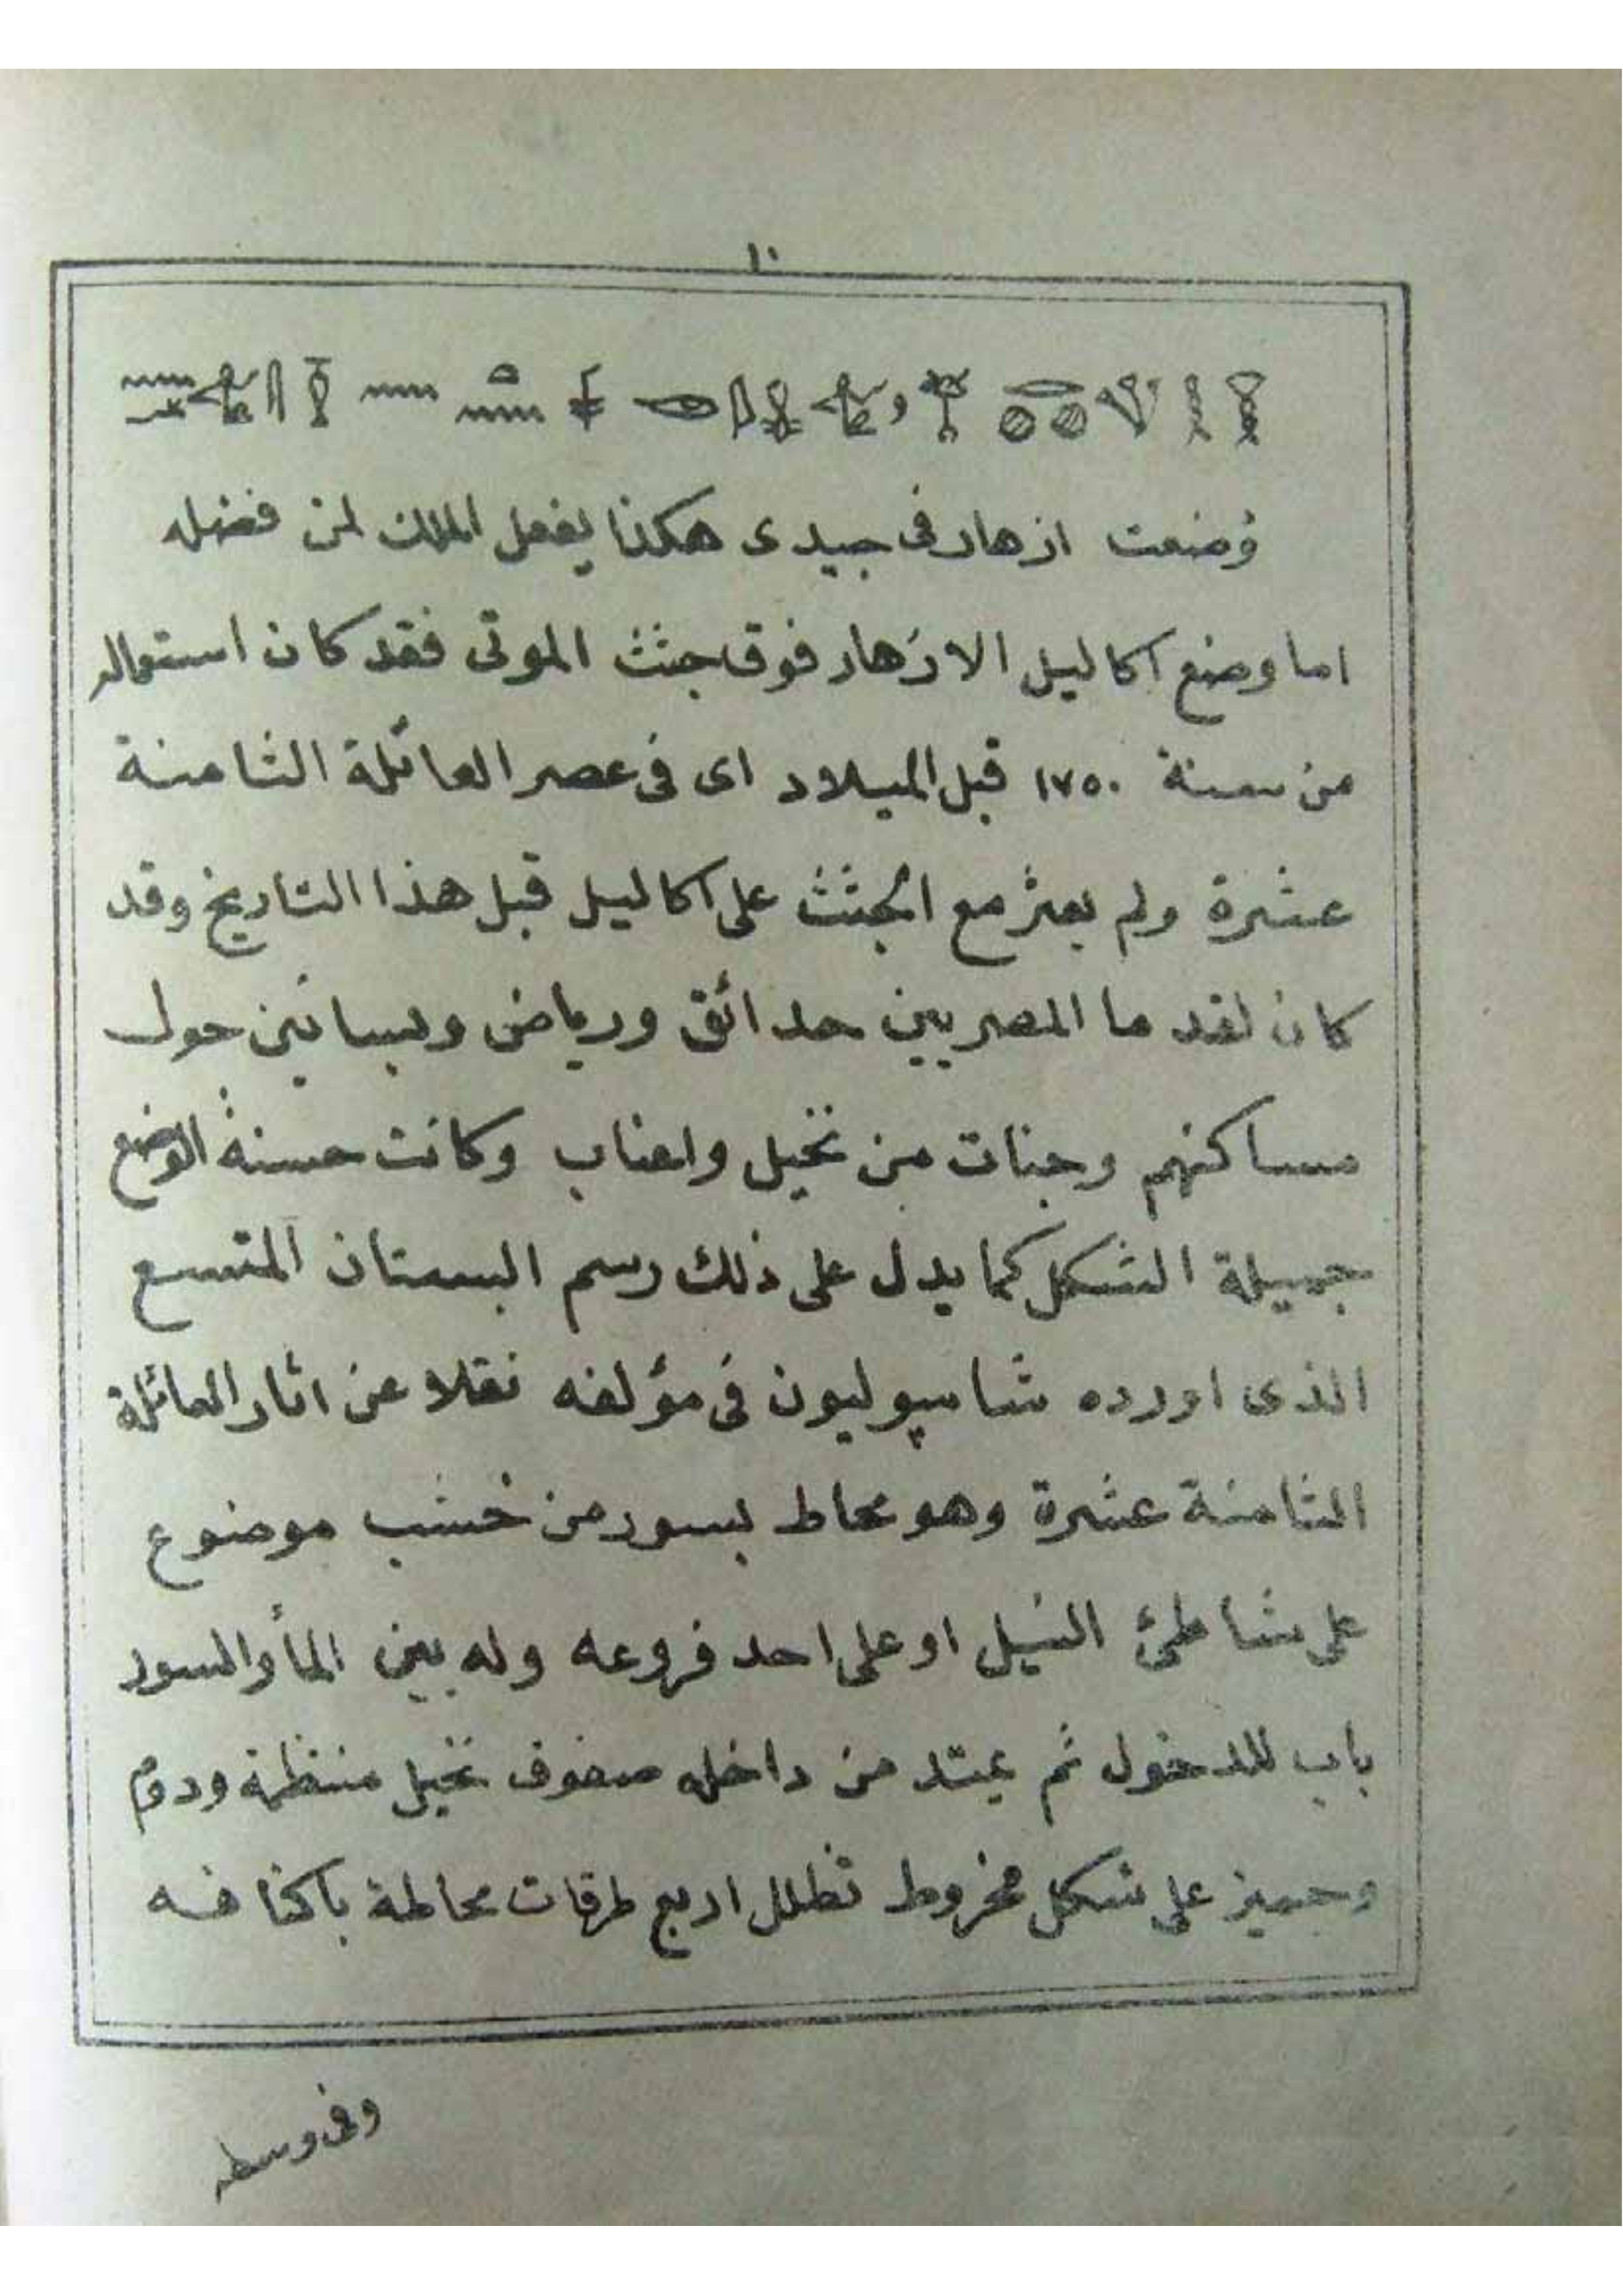 ١٠
وُضعت ازهار فى جيدى هكذا يفعل الملك لمن فضله
اما وضع اكاليل الازهار فوق جثث الموتى فقد كان استعماله
من سنة ١٧٥٠ قبل الميلاد اى فى عصر العائلة الثامنة
عشرة ولم يعثر مع الجثث على اكاليل قبل هذا التاريخ وقد
كان لقدما المصريين حدائق ورياض وبساتين حول
مساكنهم وجنات من نخيل واعناب وكانت حسنة الوضع
جميلة الشكل كما يدل على ذلك رسم البستان المتسع
الذى اورده شامپوليون فى مؤلفه نقلا عن اثار العائلة
الثامنة عشرة وهو محاط بسور من خشب موضوع
على شاطئ النيل او على احد فروعه وله بين الماء والسور
باب للدخول ثم يمتد من داخله صفوف نخيل منتظمة ودوم
وجميز على شكل مخروط تظلل اربع طرقات محاطة باكنافه
وفى وسطه